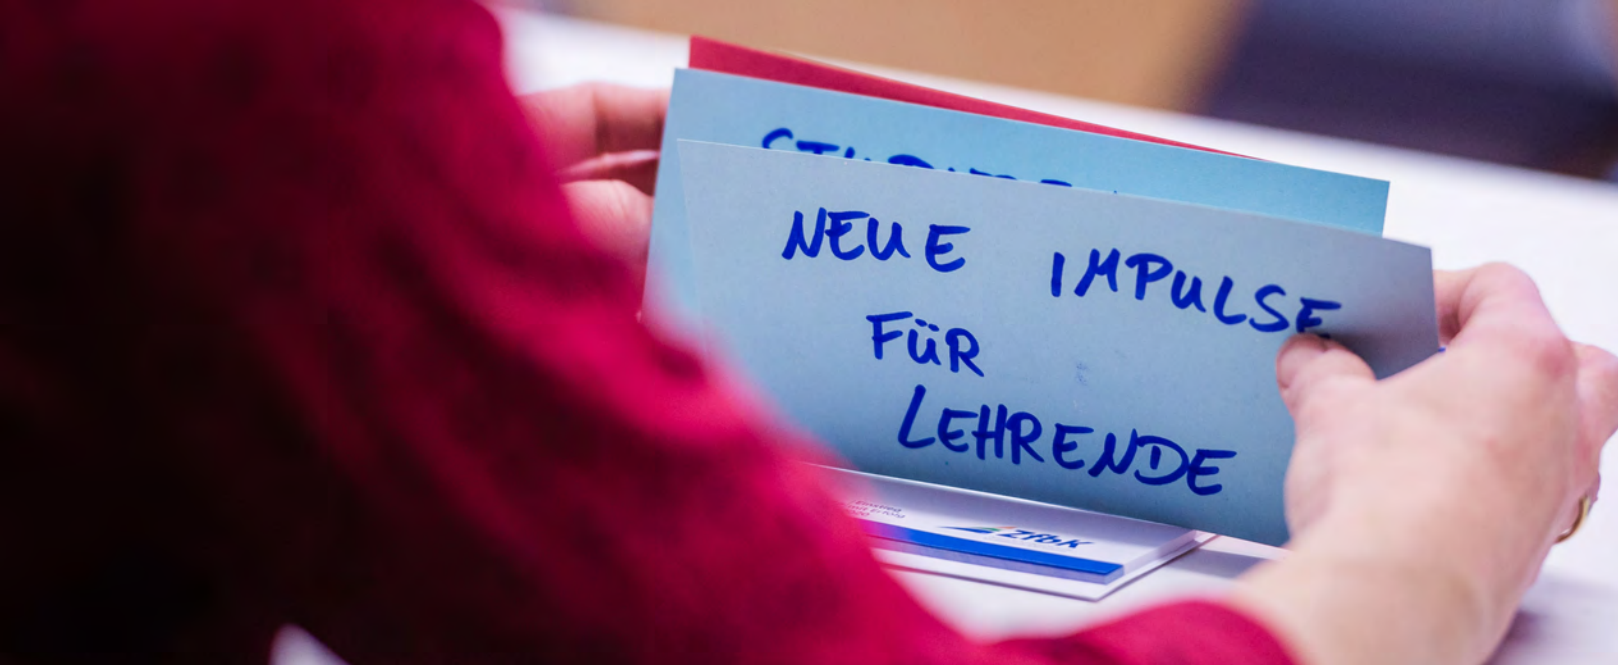 NEUE IMPULSE
FÜR
LEHRENDE
ZfbK